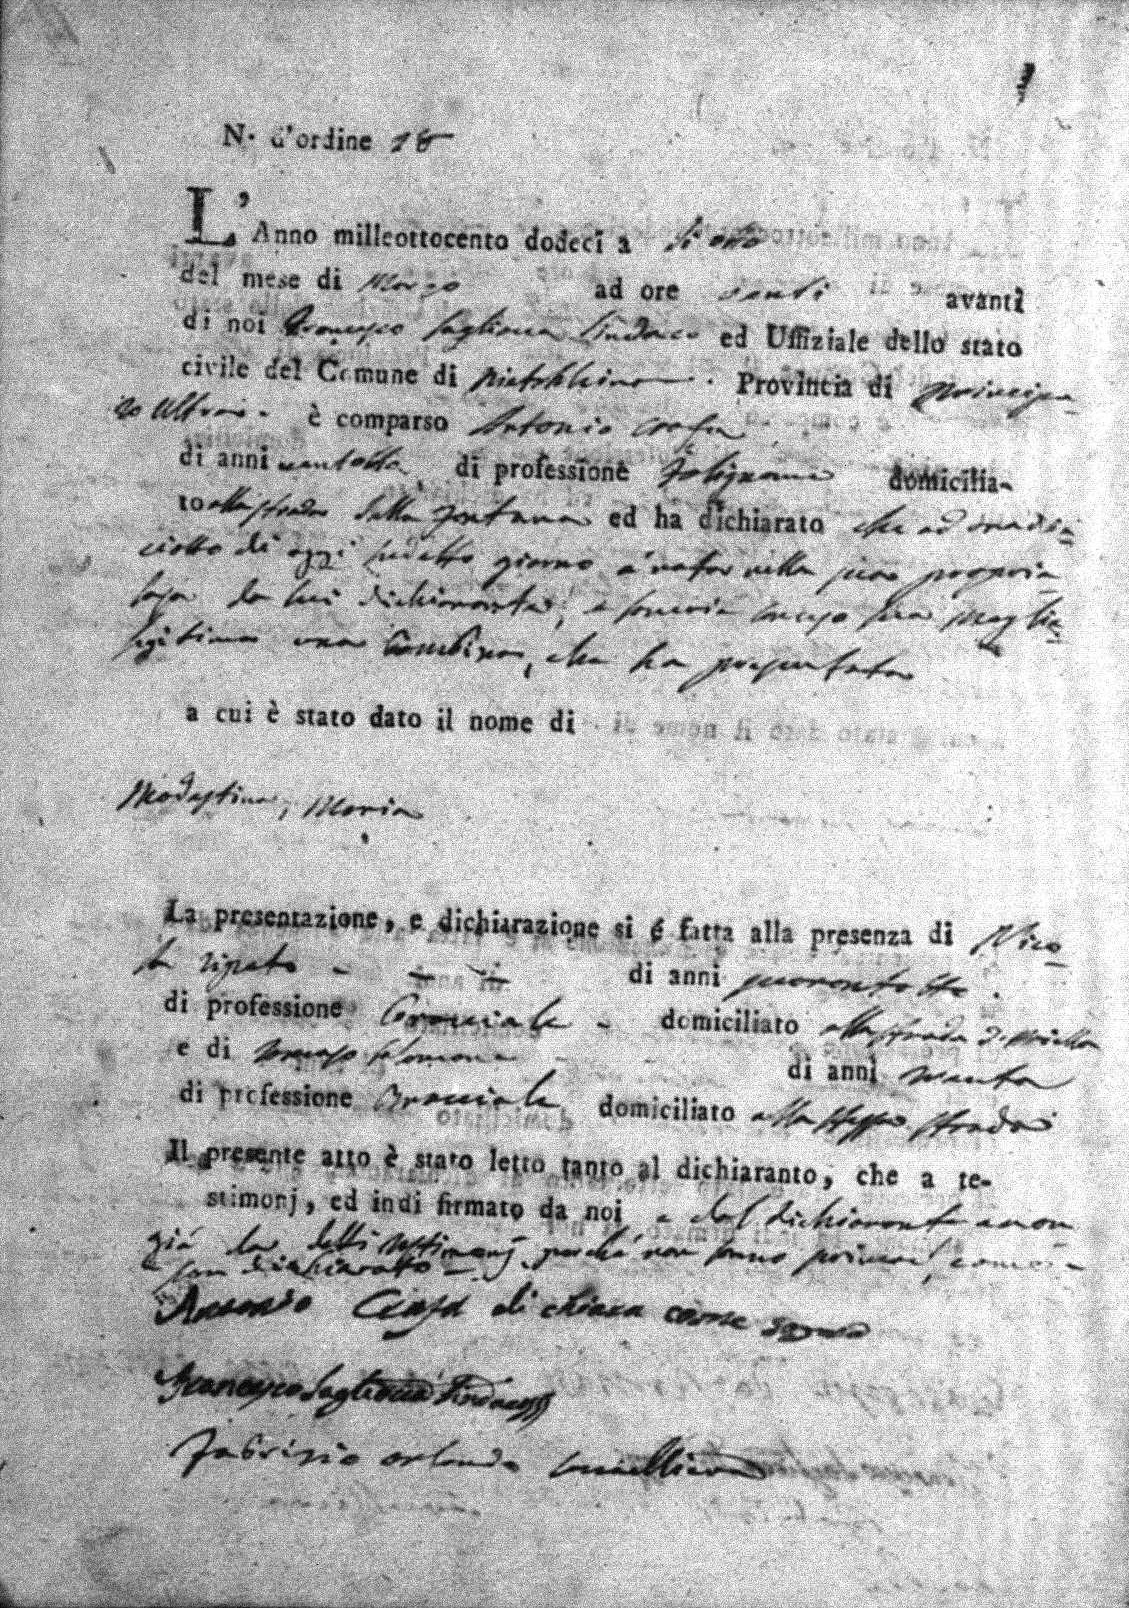 N. d'ordine 18
L'Anno milleottocento dodeci a di otto
del mese di Marzo ad ore venti avanti
di noi Francesco Sagliocca Sindaco ed Uffiziale dello stato
civile del Comune di Provincia di Principa
to Ultra. è comparso Antonio
di anni ventotto di professione Falignami domicilia-
to alla strada della Fontana ed ha dichiarato che ad ore
ciotto di oggi sudetto giorno è nata nella sua propria
Casa da lui dichiarante, e sua moglie
legitima una bambina, che ha presentata
a cui è stato dato il nome di
Modestina, Maria
La presentazione, e dichiarazione si é fatta alla presenza di Nico
la di anni quarantotto.
di professione Bracciale domiciliato alla strada
e di Tomaso Salomone di anni trenta
di prcfessione Bracciale domiciliato alla stessa strada
Il presente atto è stato letto tanto al dichiaranto, che a te-
stimonj, ed indi firmato da noi e dal dichiarante a non
già da detti testimonj perché non sanno scrivere, come
han dichiarato
Antonio di chiara come sopra
Francesco Sagliocca Sindaco
Fabrizio Orlando Cancelliere